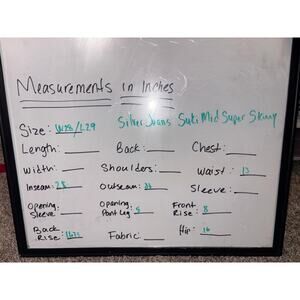 Measurements in Inches
Size: W28/L29 Silver Jeans Suki Mid Super Skinny
Length: Back: Chest:
Width: Shoulders: Waist: 15
Inseam: 28 Outseam: Sleeve:
Opening Sleeve: Opening Pant Leg: 5 Front Rise: 8
Back Rise: Fabric: Hip: 16